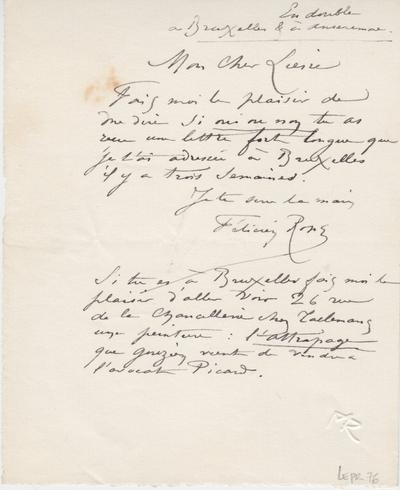 En double
à Bruxelles & à Anseremme.
Mon Cher Liesse
Fais moi le plaisir de
me dire si oui ou non tu as
reçu une lettre fort longue que
je t'ai adressée à Bruxelles
il y a trois semaines.
Je te serre la main
Félicien Rops
Si tu es à Bruxelles fais moi le
plaisir d'aller voir 26 rue
de la Chancellerie chez
une peinture : l'attrapage
que vient de vendre à
l'avocat Picard.
LEPR 76